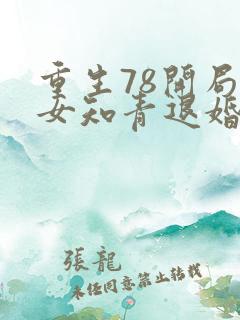 重生78開局
女知青退婚
張龍
未經同意禁止轉載